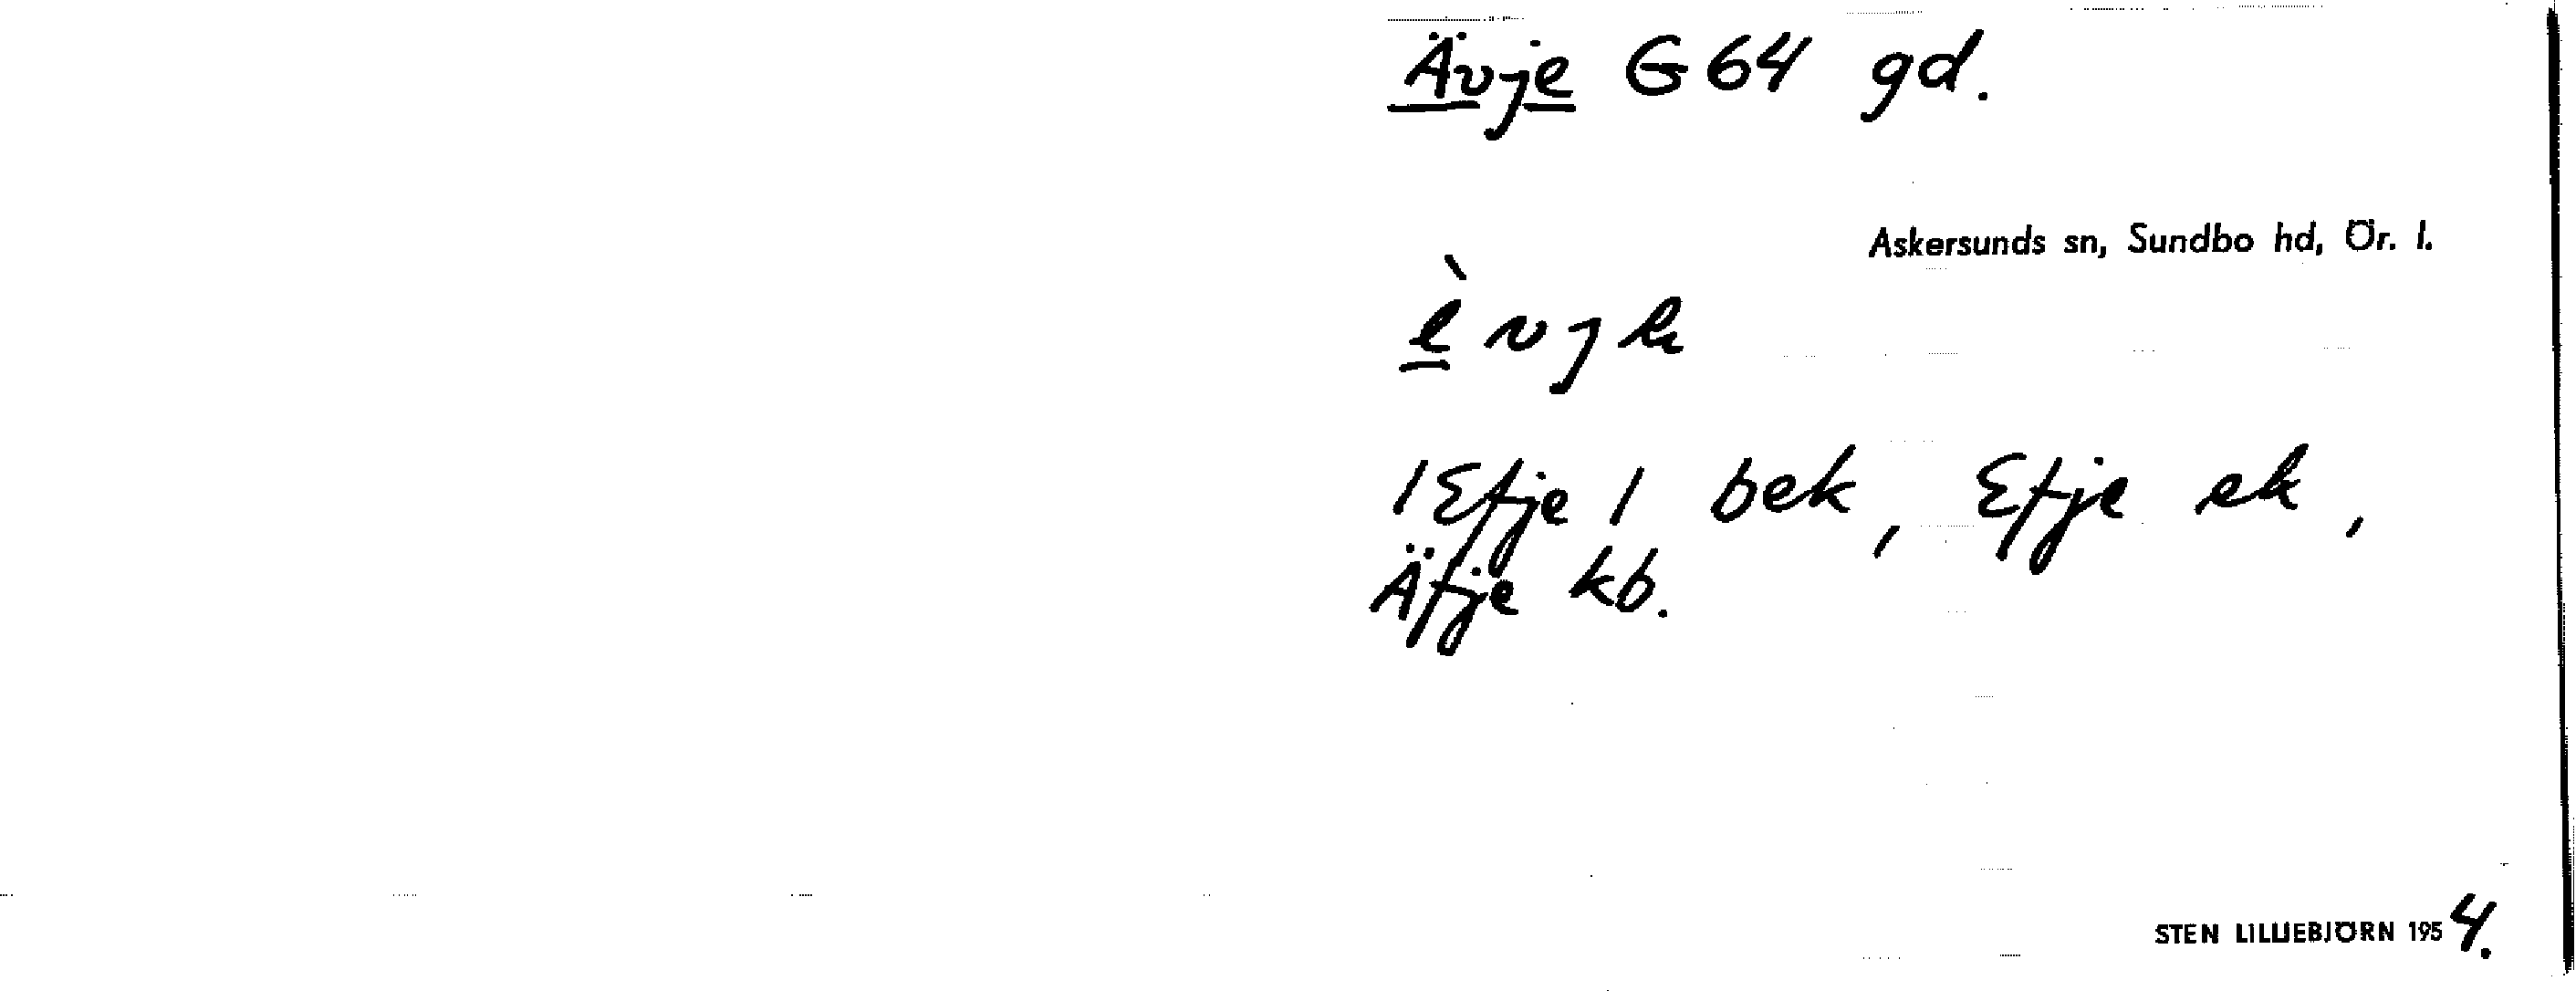 Ävje G 64 gd.
Askersunds sn, Sundbo hd, Ör. l.
/ Efje / bek, Efje ek,
Äfje kb.
STEN LILLIEBJÖRN 1954.